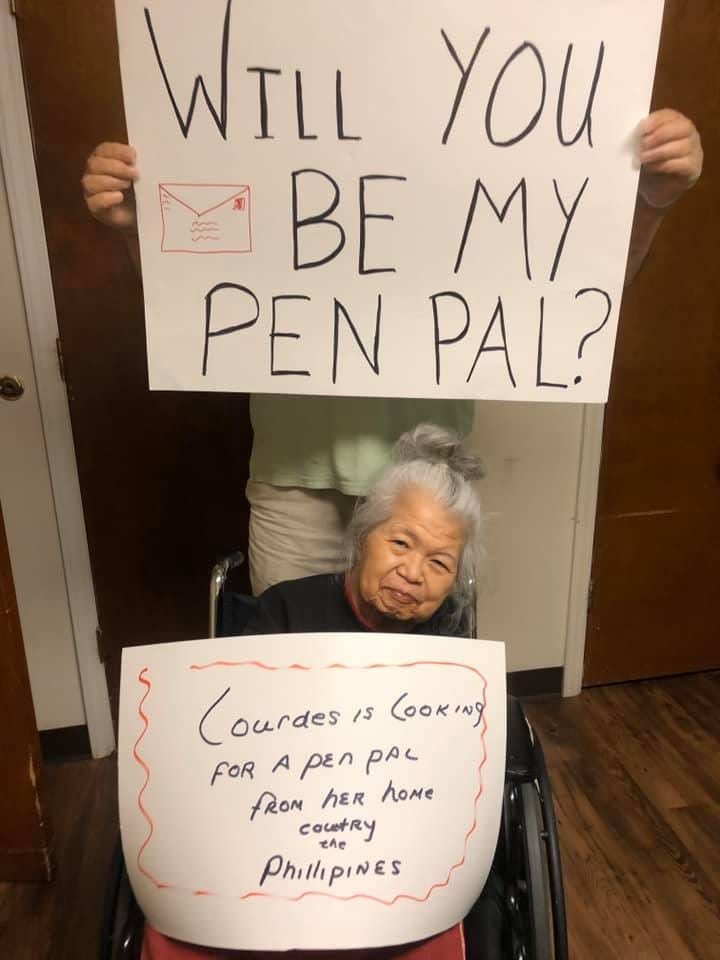 WILL YOU
BE MY
PEN PAL?
Lourdes is Looking
FOR A pen pal
FROM hER home
coutRy
the
PhillipiNES